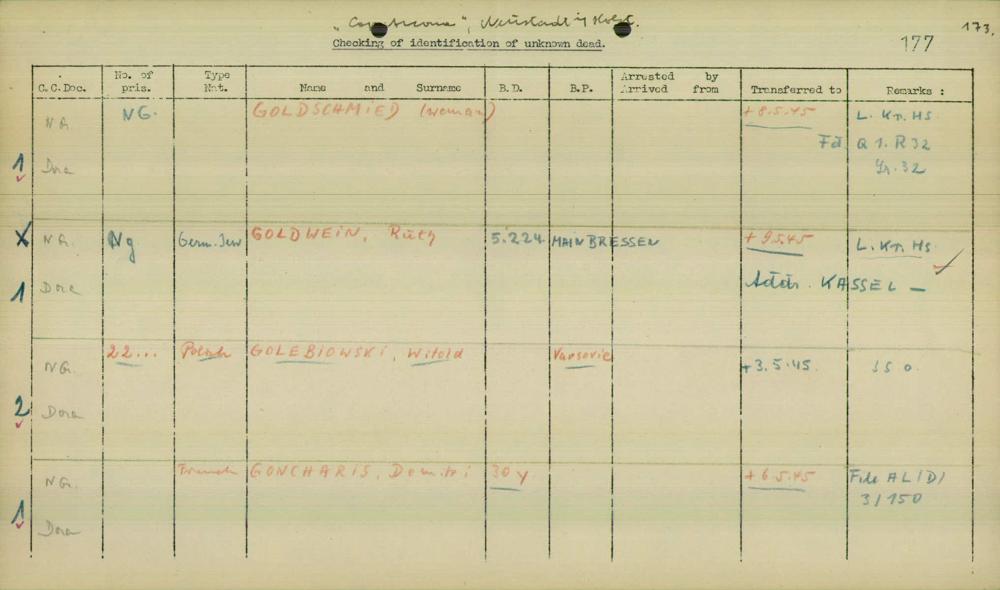 Neustadt i/ Holst.
173.
177
Checking of identification of unknown dead.
C.C.Doc. No. of pris. Type Nat. Name and Surname B.D. B.P. Arrested by Arrived from Transferred to Remarks :
NG. NG. GOLDSCHMIED (woman) + 8.5.45 L. Kr. HS
Fd. Q 1. R 32
1 Dora Gr. 32
X NG. Ng Germ. Jew GOLDWEIN, Ruth 5.2.24. MAINBRESSEN + 9.5.45 L. Kr. HS.
1 Dora Addr. KASSEL –
NG. 22... Polish GOLEBIOWSKI, Witold Varsovie + 3.5.45.
2 Dora
NG. French GONCHARIS, Domitri 30 y + 6.5.45 File AL/D/
3/150
1 Dora